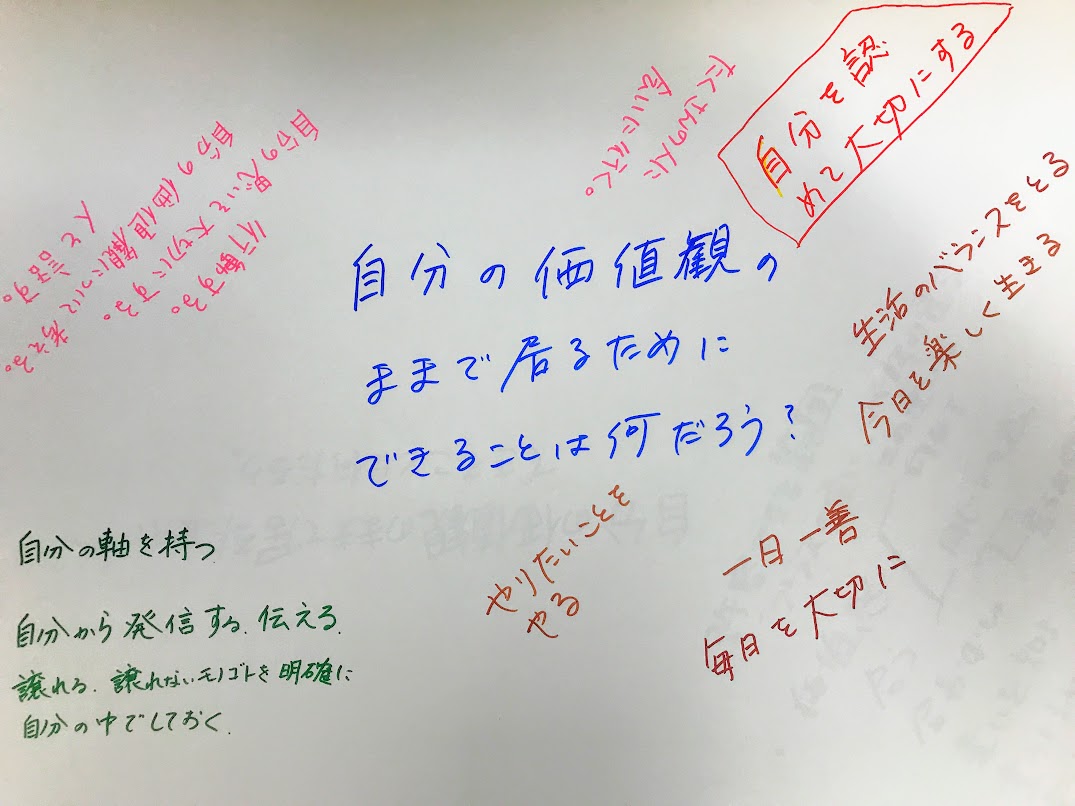 自分を認
めて大切にする
たくさんの人に
会いに行く。
行動する。
自分の思いを大切にする。
自分の価値観について考える。
人と話す。
自分の価値観の
ままで居るために
できることは何だろう?
生活のバランスをとる
今日を楽しく生きる
やりたいことを
やる
一日一善
毎日を大切に
自分の軸を持つ
自分から発信する.伝える.
譲れる.譲れないモノゴトを明確に
自分の中でしておく.